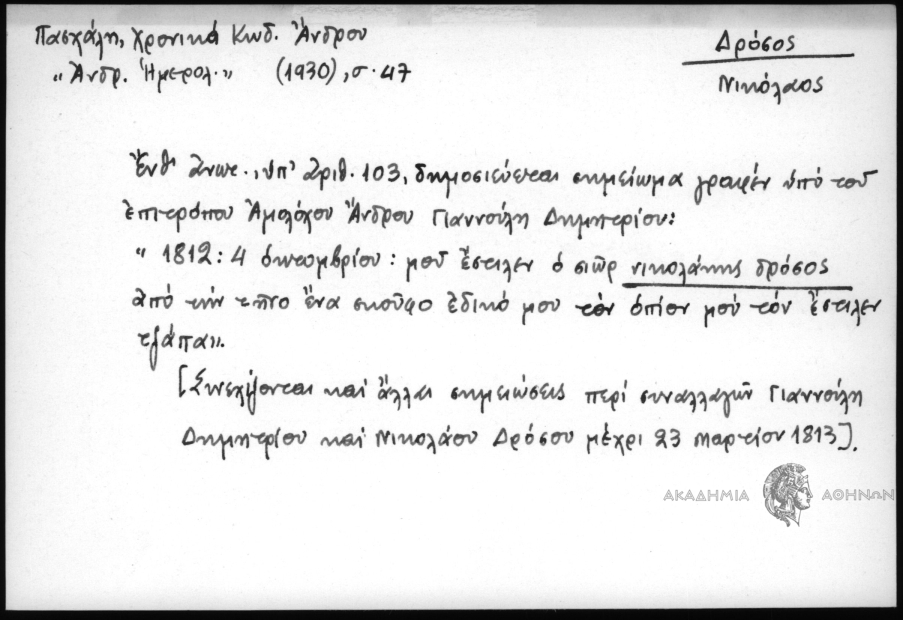 Πασχάλη, Χρονικά Κωδ. Ἄνδρου
"Ἀνδρ. Ἡμερολ." (1930), σ. 47
Δρόσος
Νικόλαος
Ἔνθ' ἄνωτ., ὑπ' ἀριθ. 103, δημοσιεύεται σημείωμα γραφέν ὑπό τοῦ
ἐπιτρόπου Ἀμολόχου Ἄνδρου Γιαννούλη Δημητρίου:
"1812: 4 ὀκτομβρίου: μοῦ ἔστιλεν ὁ σιῶρ νικολάκης δρόσος
ἀπό τήν τῆνο ἕνα σκοῦφο ἐδικό μου τὸν ὁπίον μοῦ τόν ἔστιλεν
τζάπα".
[Συνεχίζονται καί ἄλλαι σημειώσεις περί συναλλαγῶν Γιαννούλη
Δημητρίου καί Νικολάου Δρόσου μέχρι 23 μαρτίου 1813].
ΑΚΑΔΗΜΙΑ ΑΘΗΝΩΝ